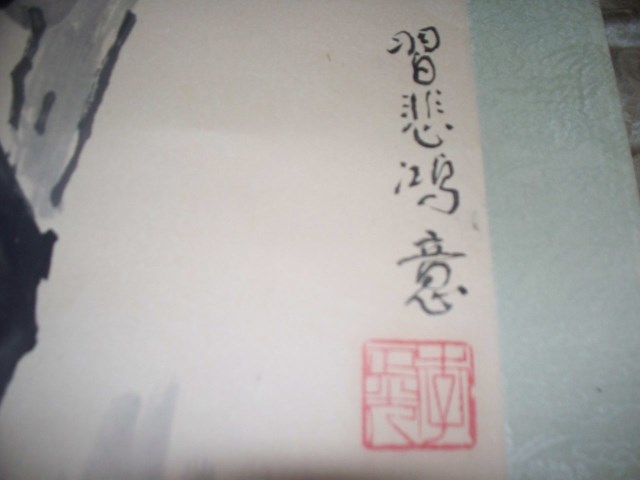 習悲鴻意